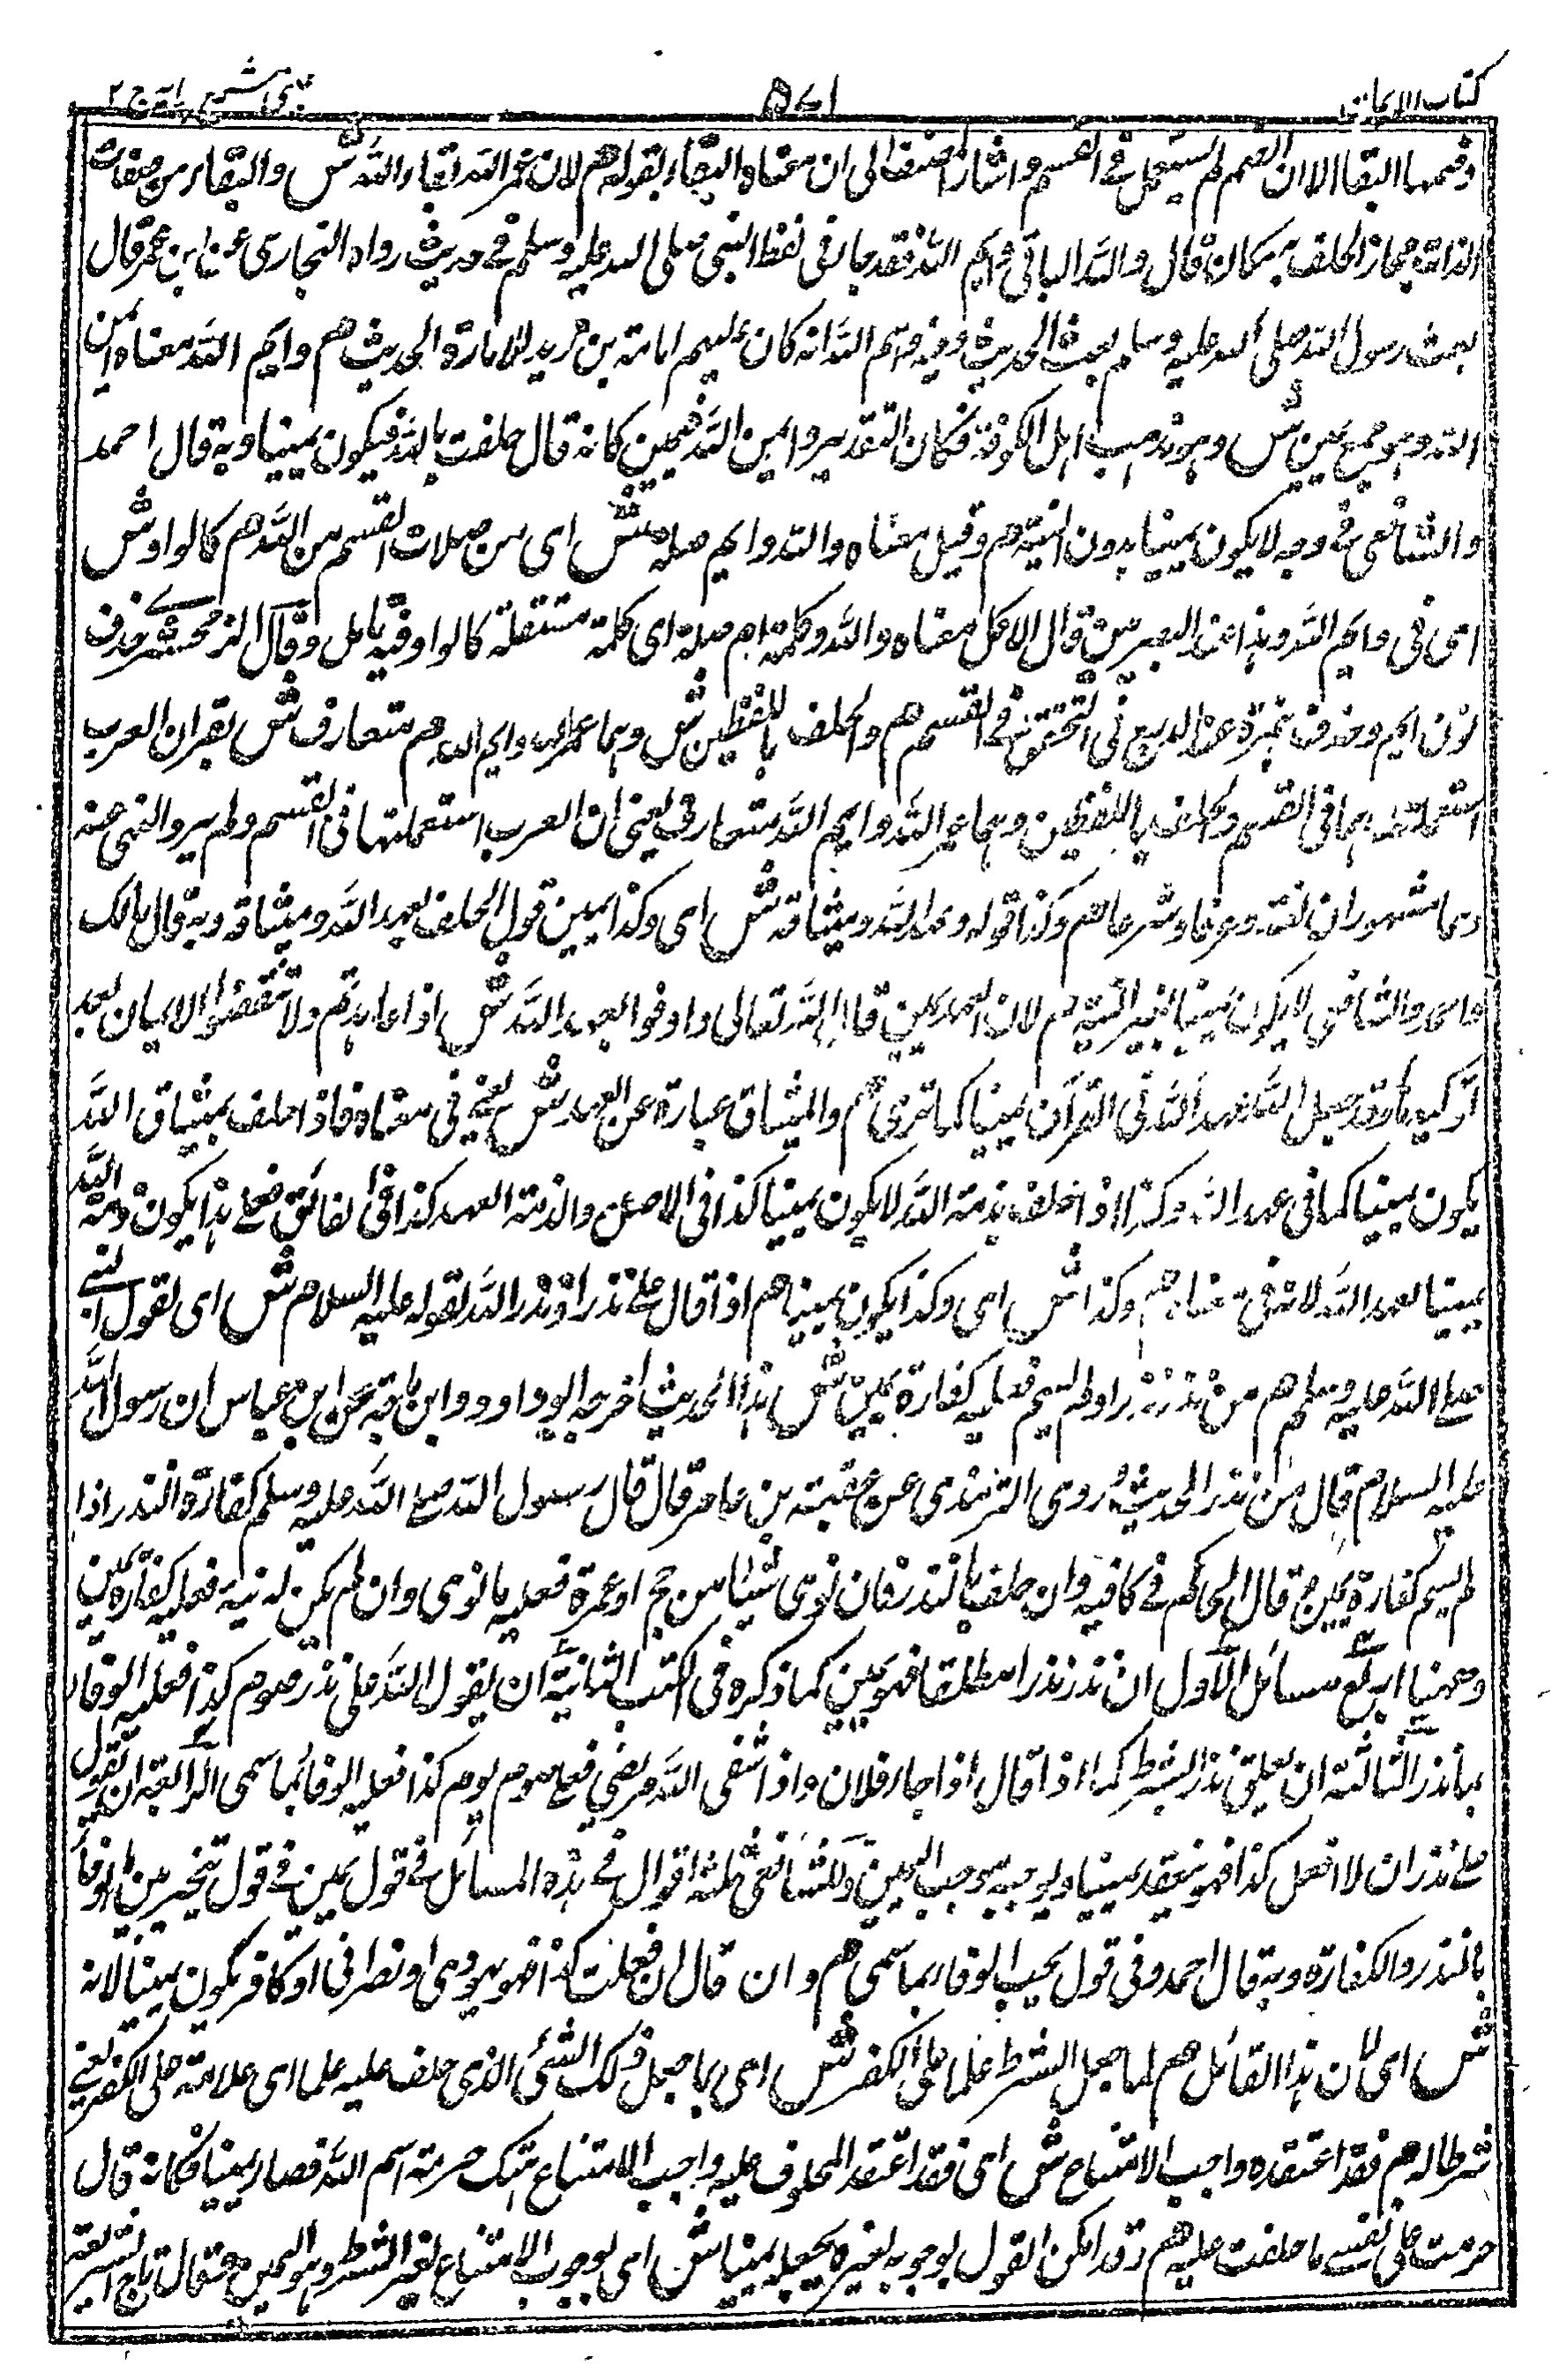 كتاب الايمان
٥٧١
عينى شرح هداية ج ٢
وضمها البقا الا ان الضم لم يستعمل فى القسم واشار المصنف الى ان معناه البقاء بقوله هم لان عمر الله بقاء الله ش والبقاء من صفات
الذات فجاز الحلف به كانه قال والله الباقى وايم الله فقد جاء فى لفظ النبى صلى الله عليه وسلم فى حديث رواه البخارى عن ابن عمر قال
بعث رسول الله صلى الله عليه وسلم بعث الحديث وفيه وايم الله انه كان للامارة الحديث هم وايم الله معناه ايمن
الله وهو جمع يمين ش وهو مذهب اهل الكوفة فكان التقدير وايمن الله يمين كانه قال حلفت بالله فيكون يمينا وبه قال احمد
والشافعى فى وجه لا يكون يمينا بدون النية هم وقيل معناه والله وايم صلة ش اى من صلات القسم من الله هم كالواو ش
اى فى وايم الله وهذا عند البصريين قال الاكمل معناه والله وكلمة ايم صلة اى كلمة مستقلة كالواو وفيه تامل وقال الزمخشرى حذف
نون ايم وحذف همزة عند الدرج فى التحقيق فى القسم هم والحلف باللفظين ش وهما عمر الله وايم الله هم متعارف ش بقران العرب
استعملتهما فى القسم والحلف باللفظين وهما عمر الله وايم الله متعارف يعنى ان العرب استعملتها فى القسم ولم يرو النهى عنه
وهما مشهوران لغة وعرفا وشرعا هم وكذا قوله وعهد الله وميثاقه ش اى وكذا يمين قول الحالف بعهد الله وميثاقه وبه قال مالك
واحمد والشافعى لا يكون يمينا بغير النية هم لان العهد يمين قال الله تعالى واوفوا بعهد الله ش اذا عاهدتم ولا تنقضوا الايمان بعد
توكيدها وقد جعل الله عهد الله فى القرآن يمينا كما ترى هم والميثاق عبارة عن العهد ش يعنى فى معناه فاذا حلف بميثاق الله
يكون يمينا كما فى عهد الله وكذا اذا حلف بذمة الله لا يكون يمينا كذا فى الاصل والذمة العهد كذا فى الفائق فعلى هذا يكون ذمة الله
يمينا لعهد الله لانه فى معناه هم وكذا ش اى وكذا يكون يمينا هم اذا قال على نذر او نذر الله لقوله عليه السلام ش اى لقول النبى
صلى الله عليه وسلم هم من نذر نذرا ولم يسم فعليه كفارة يمين ش هذا الحديث اخرجه ابو داود وابن ماجة عن ابن عباس ان رسول الله
عليه السلام قال من نذر الحديث وروى الترمذى عن عقبة بن عامر قال قال رسول الله صلى الله عليه وسلم كفارة النذر اذا
لم يسم كفارة يمين ج قال الحاكم فى كافيه وان حلف بالنذر فان نوى شيئا من حج او عمرة فعليه ما نوى وان لم يكن له نية فعليه كفارة يمين
وههنا اربع مسائل الاول ان نذر نذرا مطلقا فهو يمين كما ذكره فى الكتب الثانية ان يقول لله على نذر صوم كذا فعليه الوفاء
بما نذر الثالثة ان يعلق نذر بشرط كما اذا قال اذا جاء فلان واذا شفى الله مريضى فعلى صوم يوم كذا فعليه الوفا بما سمى الرابعة ان يقول
على نذر ان لا افعل كذا فهو ينعقد يمينا ويوجبه موجب اليمين وللشافعى ثلثة اقوال فى هذه المسائل فى قول يمين فى قول تخير بين الوفا
بالنذر والكفارة وبه قال احمد وفى قول يجب الوفاء بما سمى هم وان قال ان فعلت كذا فهو يهودى او نصرانى او كافر يكون يمينا لانه
ش اى لان هذا القائل هم لما جعل الشرط علما على الكفر ش اى لما جعل ذلك الشئ الذى حلف عليه علما اى علامة على الكفر يعنى
شرطا له هم فقد اعتقده واجب الامتناع ش اى فقد اعتقد المحلوف عليه واجب الامتناع بهتك حرمة اسم الله فصار يمينا فكانه قال
حرمت على نفسى ما حلفت عليه هم وقد امكن القول بوجوبه لغيره بجعله يمينا ش اى لوجوب الامتناع لغير الشرط وهو اليمين وقال تاج الشريعة